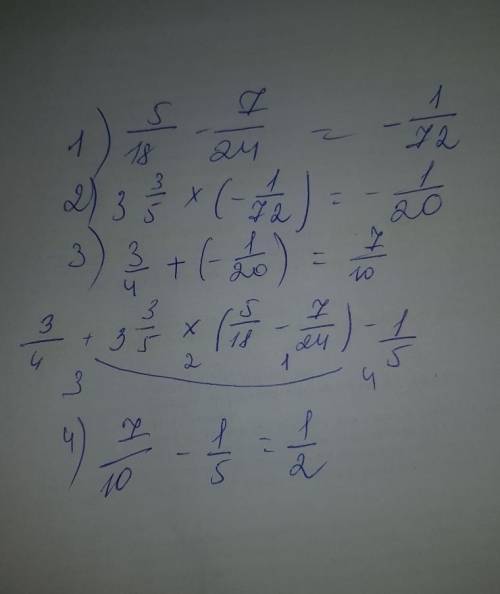 1) 5/18 - 7/24 = - 1/72
2) 3 3/5 × (- 1/72) = - 1/20
3) 3/4 + (- 1/20) = 7/10
3/4 + 3 3/5 × (5/18 - 7/24) - 1/5
3 2 1 4
4) 7/10 - 1/5 = 1/2